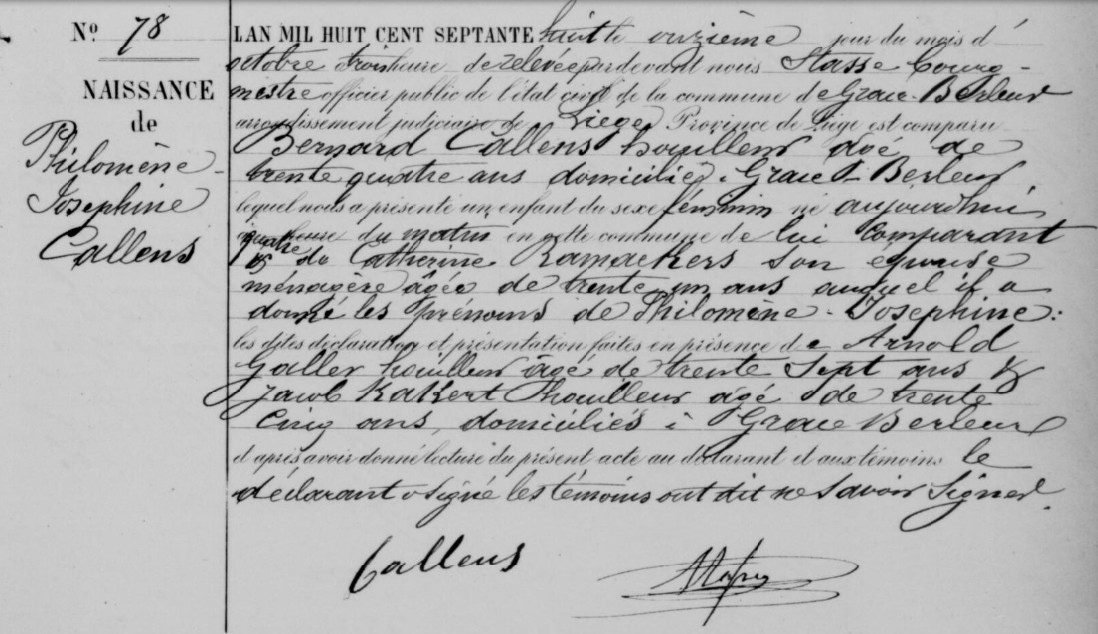 Nº 78
NAISSANCE
de
Philomène-
Josephine
Callens
LAN MIL HUIT CENT SEPTANTE huit le onzième jour du mois d'
octobre trois heure de relevée pardevant nous Stasse Bourg-
mestre officier public de l'état civil de la commune de Grace-Berleur
arrondissement judiciaire de Liège Province de Liège est comparu
Bernard Callens houilleur agé de
trente quatre ans domicilié à Grace-Berleur
lequel nous a présenté un enfant du sexe feminin né aujourd'hui
quatre heure du matin en cette commune de lui Comparant
& de Catherine Ramackers son epouse
ménagère âgée de trente un ans auquel il a
donné les prénoms de Philomène-Josephine:
les dites déclaration et présentation faites en présence de Arnold
Galler houilleur âgé de trente Sept ans &
Jacob Kakert houilleur agé de trente
Cinq ans, domiciliés à Grace Berleur
et après avoir donné lecture du présent acte au déclarant et aux témoins le
déclarant a signé les témoins ont dit ne Savoir Signer.
Callens